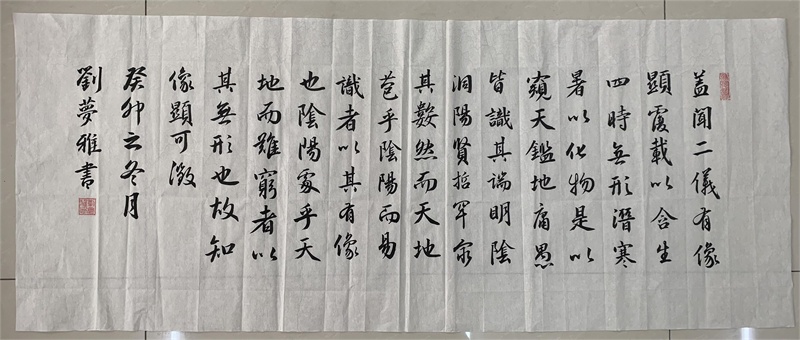 盖闻二儀有像
顯覆載以含生
四時無形潛寒
暑以化物是以
窺天鑑地庸愚
皆識其端明陰
洞陽賢哲罕窮
其數然而天地
苞乎陰陽而易
識者以其有像
也陰陽處乎天
地而難窮者以
其無形也故知
像顯可徵
癸卯之冬月
劉夢雅書